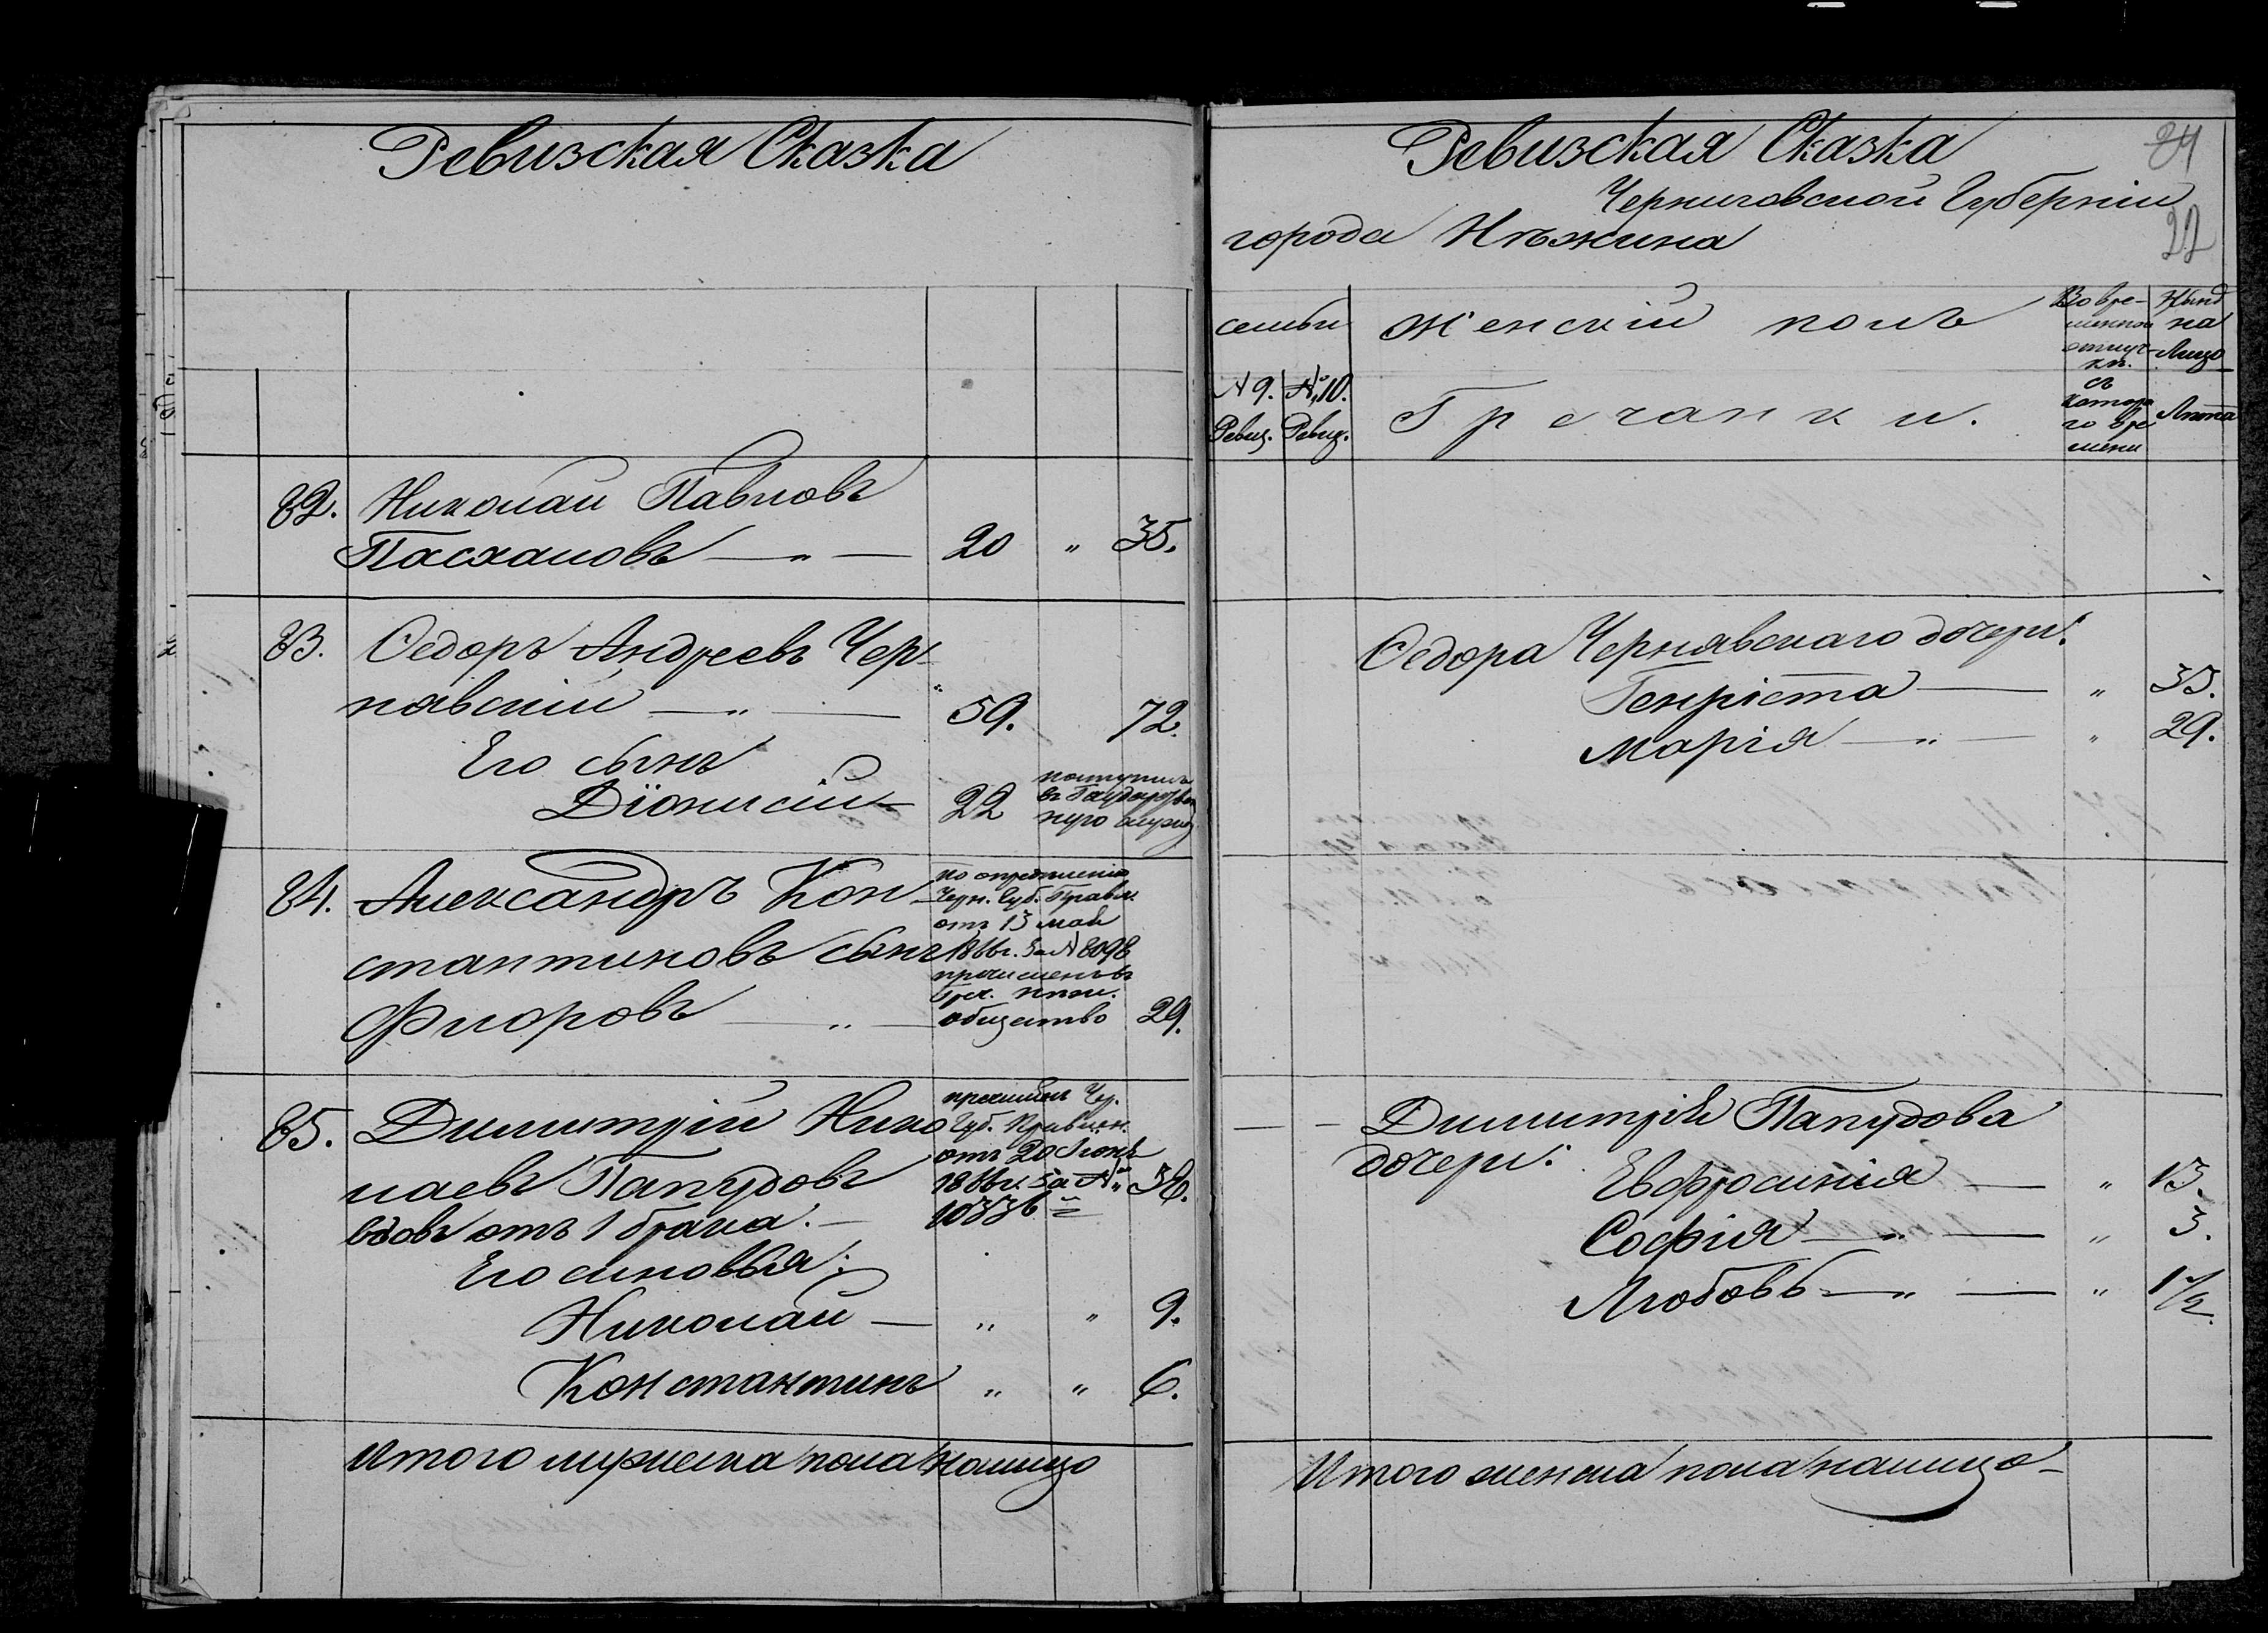 Ревизская Сказка
82. Николай Павловъ
Пасхаловъ — „ — 20 „ 35.
83. Ѳедоръ Андреевъ Чер-
нявскій — „ — 59. „ 72.
Его сынъ
Діонисій — 22 поступилъ
въ Государствен
ную службу
84. Александръ Кон-
стантиновъ сынъ
Флоровъ — „ — 29.
по опредѣленію
Черн. Губ. Правл.
отъ 13 мая
1866г. За № 8098
причисленъ въ
Греч. нѣж.
общество
85. Димитрій Нико
лаевъ Папудовъ 38.
вдовъ отъ 1 брака. —
причислен Чер.
Губ. Правлен.
отъ 20 Іюня
1866г. за №
10336
Его сыновья:
Николай — „ „ 9.
Константинъ „ „ 6.
Итого мужеска пола налицо
Ревизская Сказка
84
Черниговской Губерніи
22
города Нѣжина
семьи
№ 9. Ревиз.
№ 10. Ревиз.
Женскій полъ
Гречанки.
Во вре-
менной
отлуч-
кѣ.
съ
котора
го вре
мени
Нынѣ
на
Лицо
Лѣта
Ѳедора Чернявскаго дочери:
Генріета — „ 35.
Марія — „ — „ 29.
Димитрія Папудова
дочери:
Евфросинія — „ 13.
Софія — „ — „ 3.
Любовь — „ — „ 1/2.
Итого женска пола налицо —